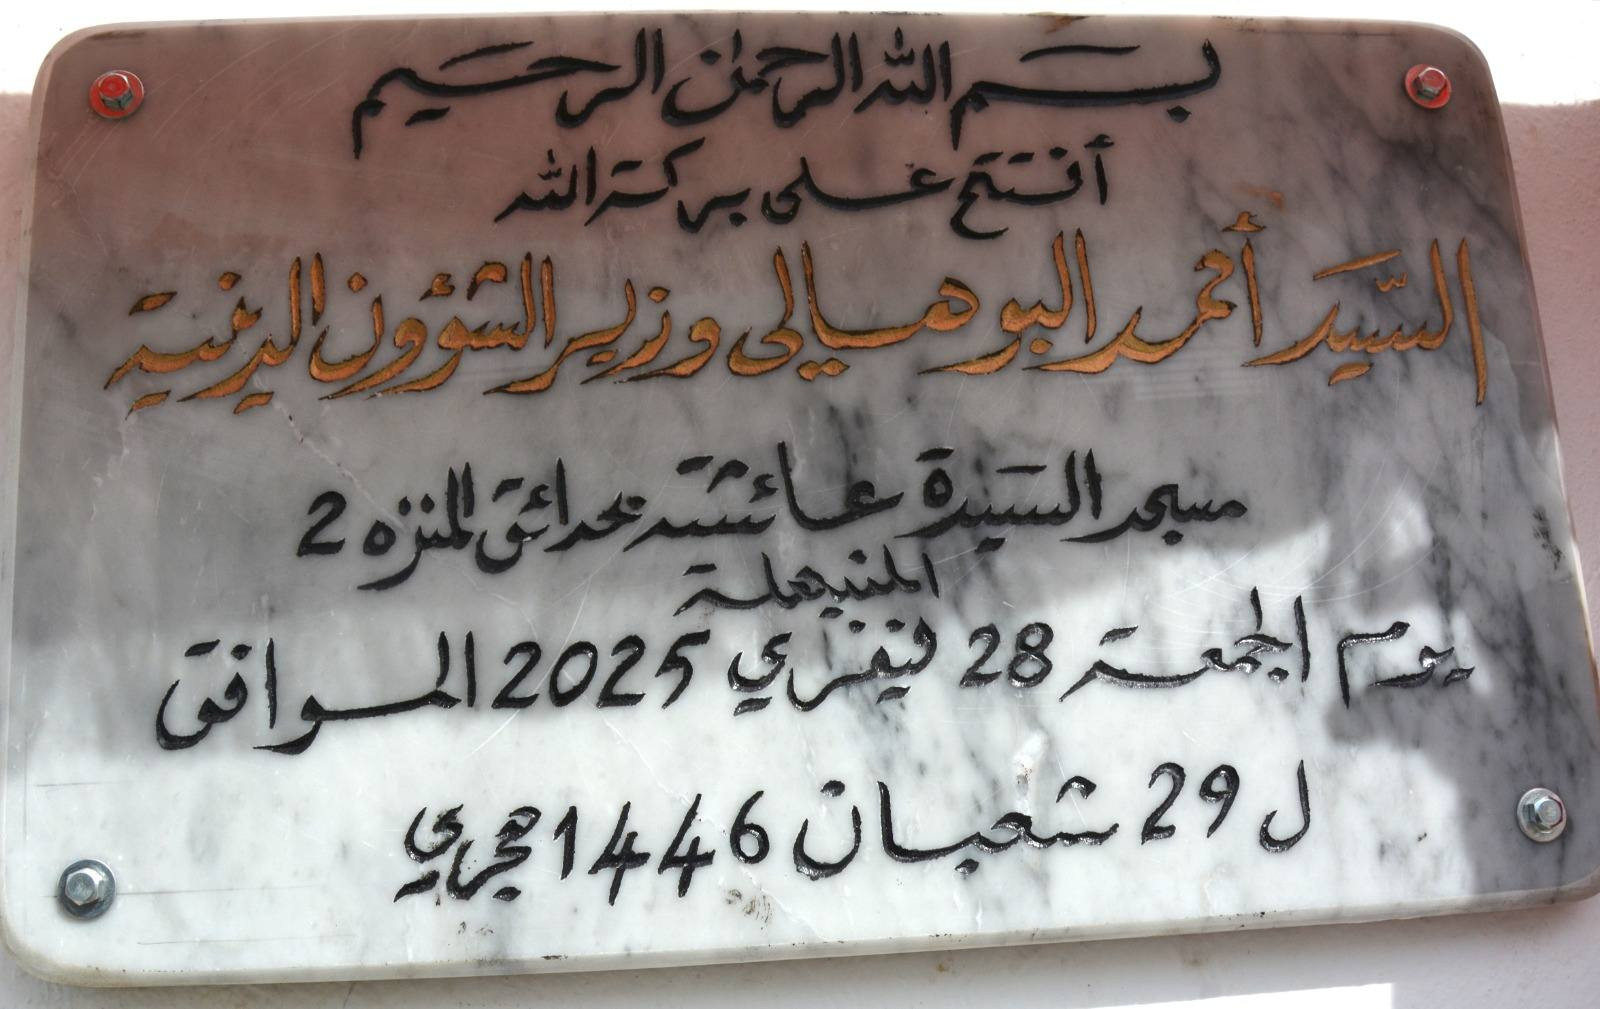 بسم الله الرحمان الرحيم
أفتتح على بركة الله
السيد أحمد البوهالي وزير الشؤون الدينية
مسجد السيدة عائشة بحدائق المنزه 2
المنيهلة
يوم الجمعة 28 فيفري 2025 الموافق
ل 29 شعبان 1446 هجري